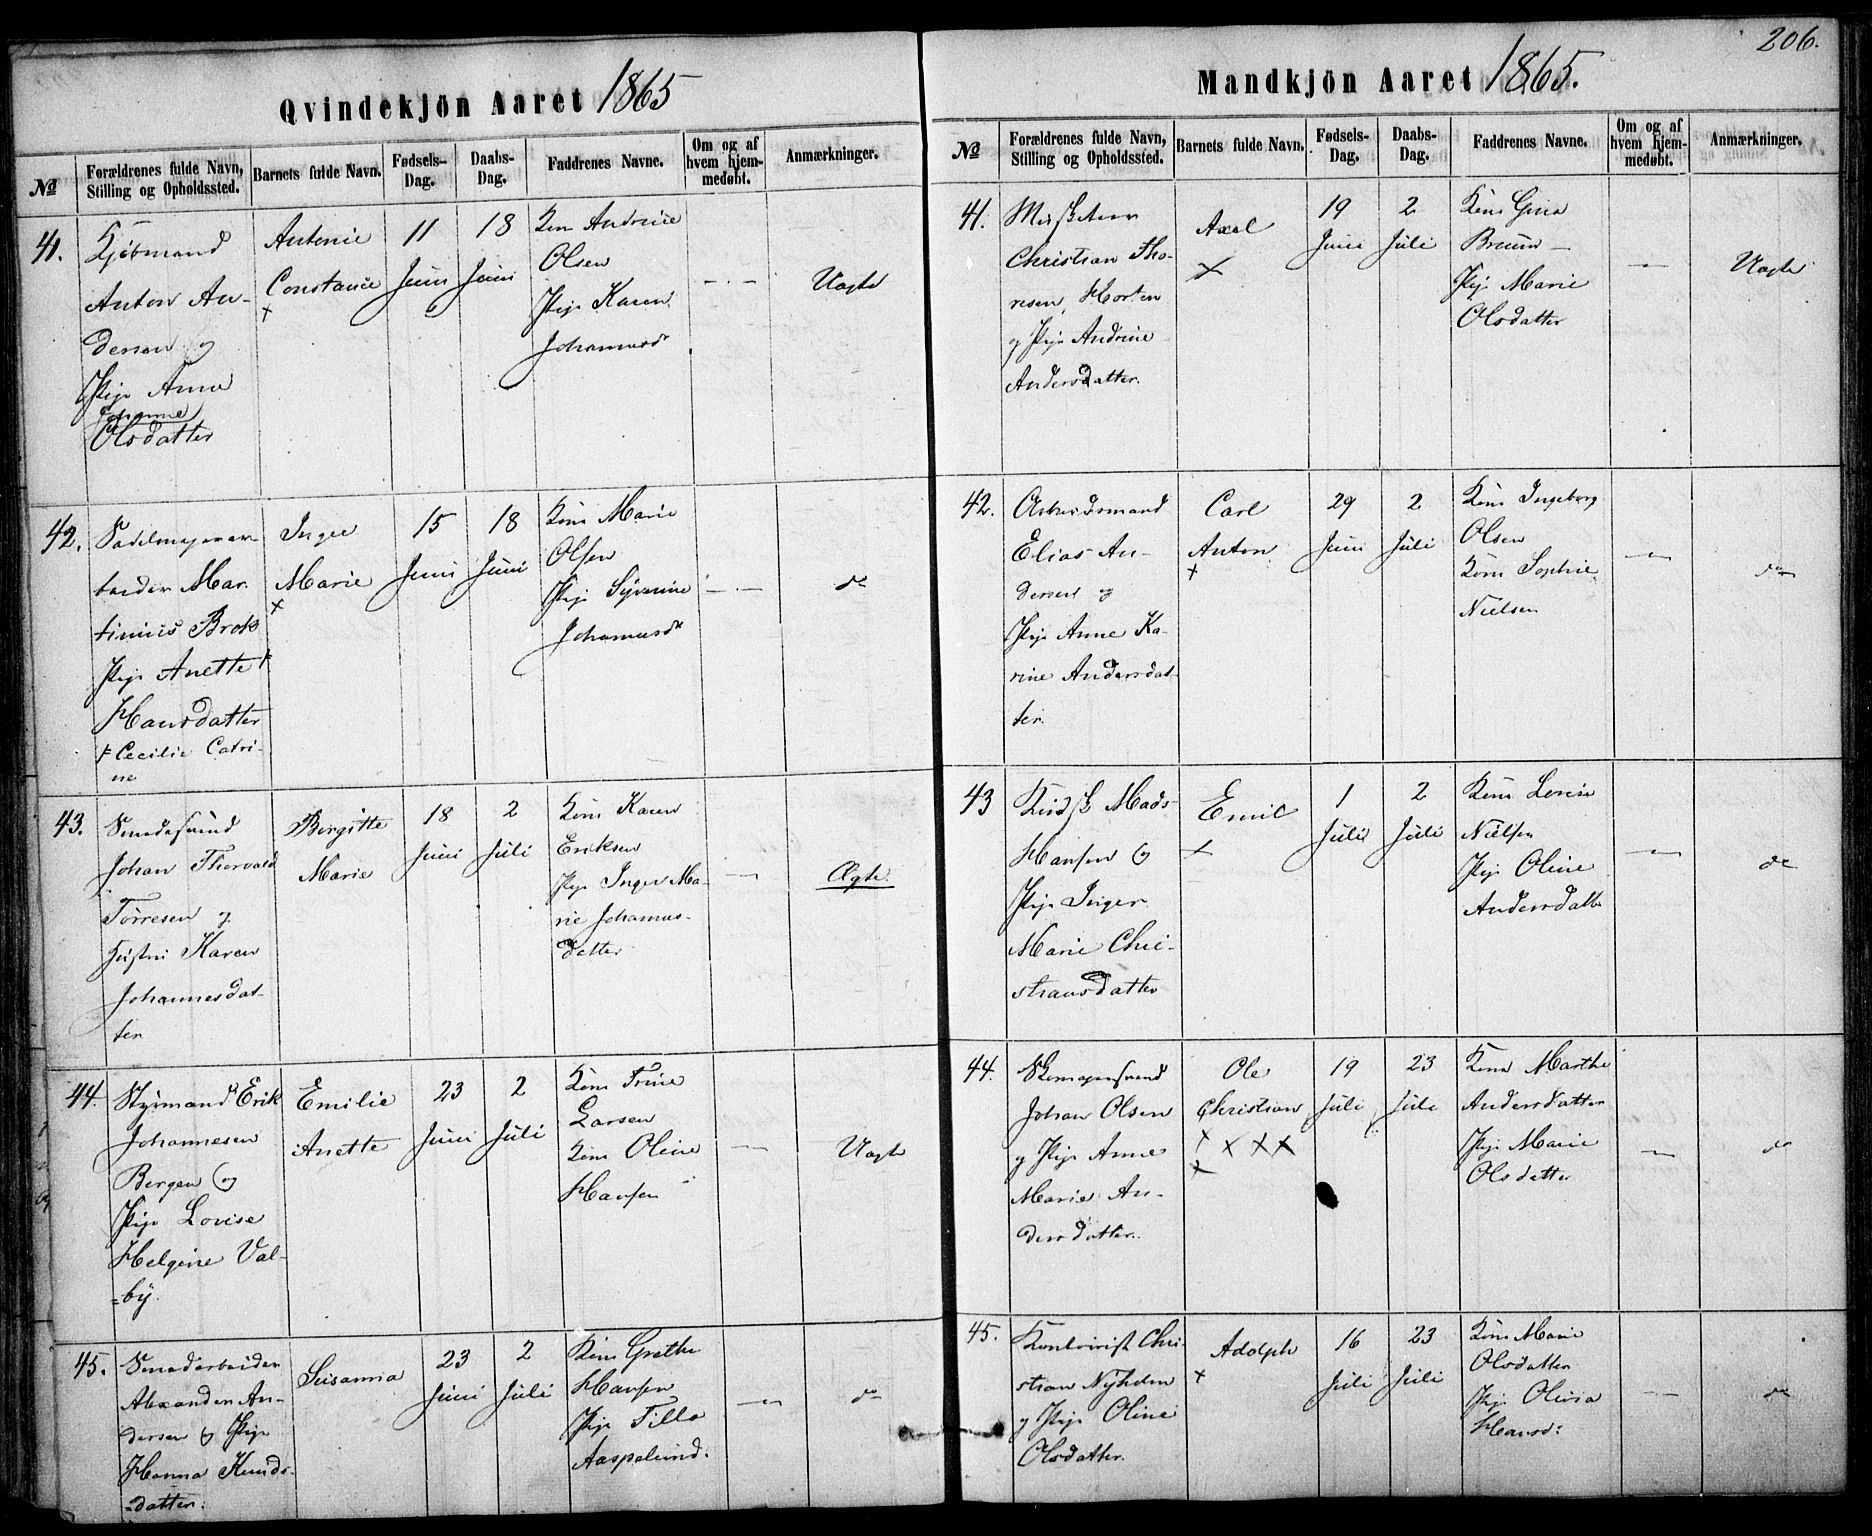 206.
Qvindekjön Aaret 1865
No
Forældrenes fulde Navn, Stilling og Opholdssted.
Barnets fulde Navn.
Fødsels-Dag.
Daabs-Dag.
Faddrenes Navne.
Om og af hvem hjem-medøbt.
Anmærkninger.
41.
Kjøbmand
Anton An-
dersen og
Pige Anne
Johanne
Olsdatter
Antonie
Constance
+
11
Juni
18
Juni
Kone Andrine
Olsen
Pige Karen
Johannesdr
- . -
Uægte
42.
Sadelmagerar-
beider Mar-
tinius Brek
Pige Anette +
Hansdatter
+ Cecilie Catri-
ne
Inger
Marie
+
15
Juni
18
Juni
Kone Marie
Olsen
Pige Syverine
Johannesdr
- . -
do
43.
Smedesvend
Johan Thorvald
Torresen og
Hustru Karen
Johannesdat-
ter
Birgitte
Marie
18
Juni
2
Juli
Kone Karen
Eriksen
Pige Inger Ma-
rie Johannes-
datter
—
Ægte.
44.
Styrmand Erik
Johannesen
Bergen og
Pige Lovise
Helgine Val-
=by.
Emilie
Anette
23
Juni
2
Juli
Kone Trine
Larsen
Kone Oline
Hansen
—
Uægte
45.
Smedarbeider
Alexander An-
dersen og Pige
Hanna Knuds-
=datter.
Susanna
23
Juni
2
Juli
Kone Grethe
Hansen
Pige Tilla
Aaspelund.
—
do
Mandkjön Aaret 1865.
No
Forældrenes fulde Navn, Stilling og Opholdssted.
Barnets fulde Navn.
Fødsels-Dag.
Daabs-Dag.
Faddrenes Navne.
Om og af hvem hjem-medøbt.
Anmærkninger.
41.
Christian Tho-
resen, Horten
og Pige Andrine
Andersdatter.
Axel
+
19
Juni
2
Juli
Kone Gina
Bruun
Pige Marie
Olsdatter
—
Uægte
42.
Arbeidsmand
Elias An-
dersen og
Pige Anne Ka-
rine Andersdat-
ter.
Carl
Anton
+
29
Juni
2
Juli
Kone Ingeborg
Olsen
Kone Sophie
Nielsen
—
do
43
Mads
Hansen og
Pige Inger
Marie Chri-
stiansdatter
Emil
+
1
Juli
2
Juli
Kone Lovise
Nielsen
Pige Oline
Andersdatter
—
do
44.
Skomagersvend
Johan Olsen
og Pige Anne
Marie An-
dersdatter.
Ole
Christian
+ x x x
+
19
Juli
23
Juli
Kone Marthe
Andersdatter
Pige Marie
Olsdatter
—
do
45.
Kontorist Chri-
stian Nyholm
og Pige Oline
Olsdatter.
Adolph
+
16
Juli
23
Juli
Kone Marie
Olsdatter
Pige Olivia
Hansd:
—
do